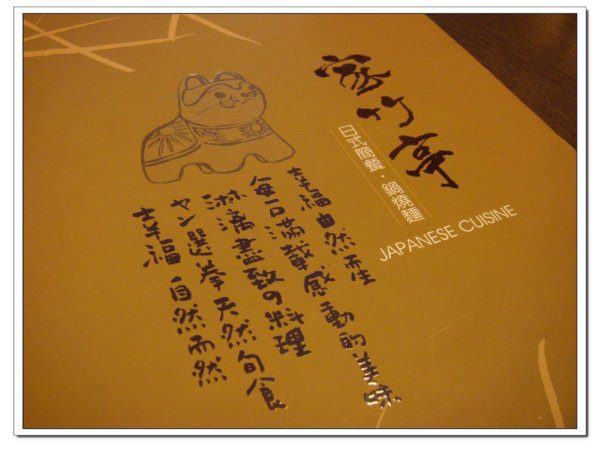 家竹亭
日式簡餐・鍋燒麵
JAPANESE CUISINE
幸福自然而在
每一口滿載感動的美味
淋漓盡致の料理
ヤン選拳天然旬食
幸福 自然而然